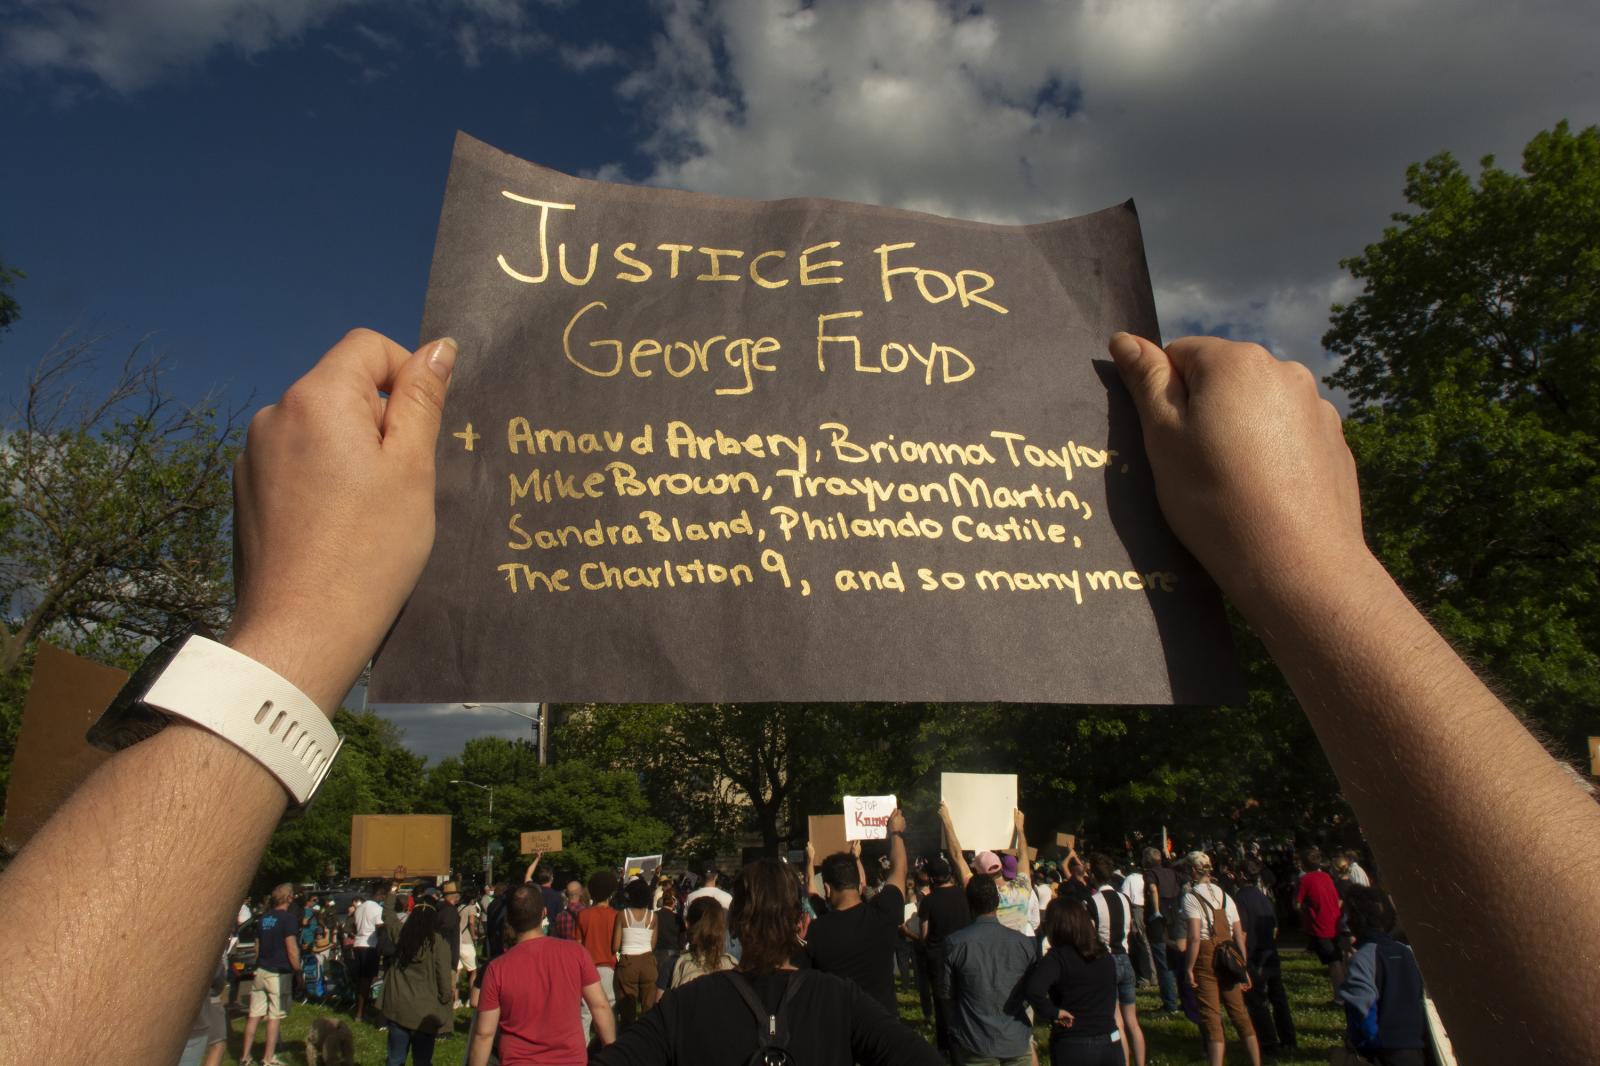 JUSTICE FOR
George FLOYD
+ Amaud Arbery, Brionna Taylor,
Mike Brown, Trayvon Martin,
Sandra Bland, Philando Castile,
The Charlston 9, and so many more
STOP
KILLING
US